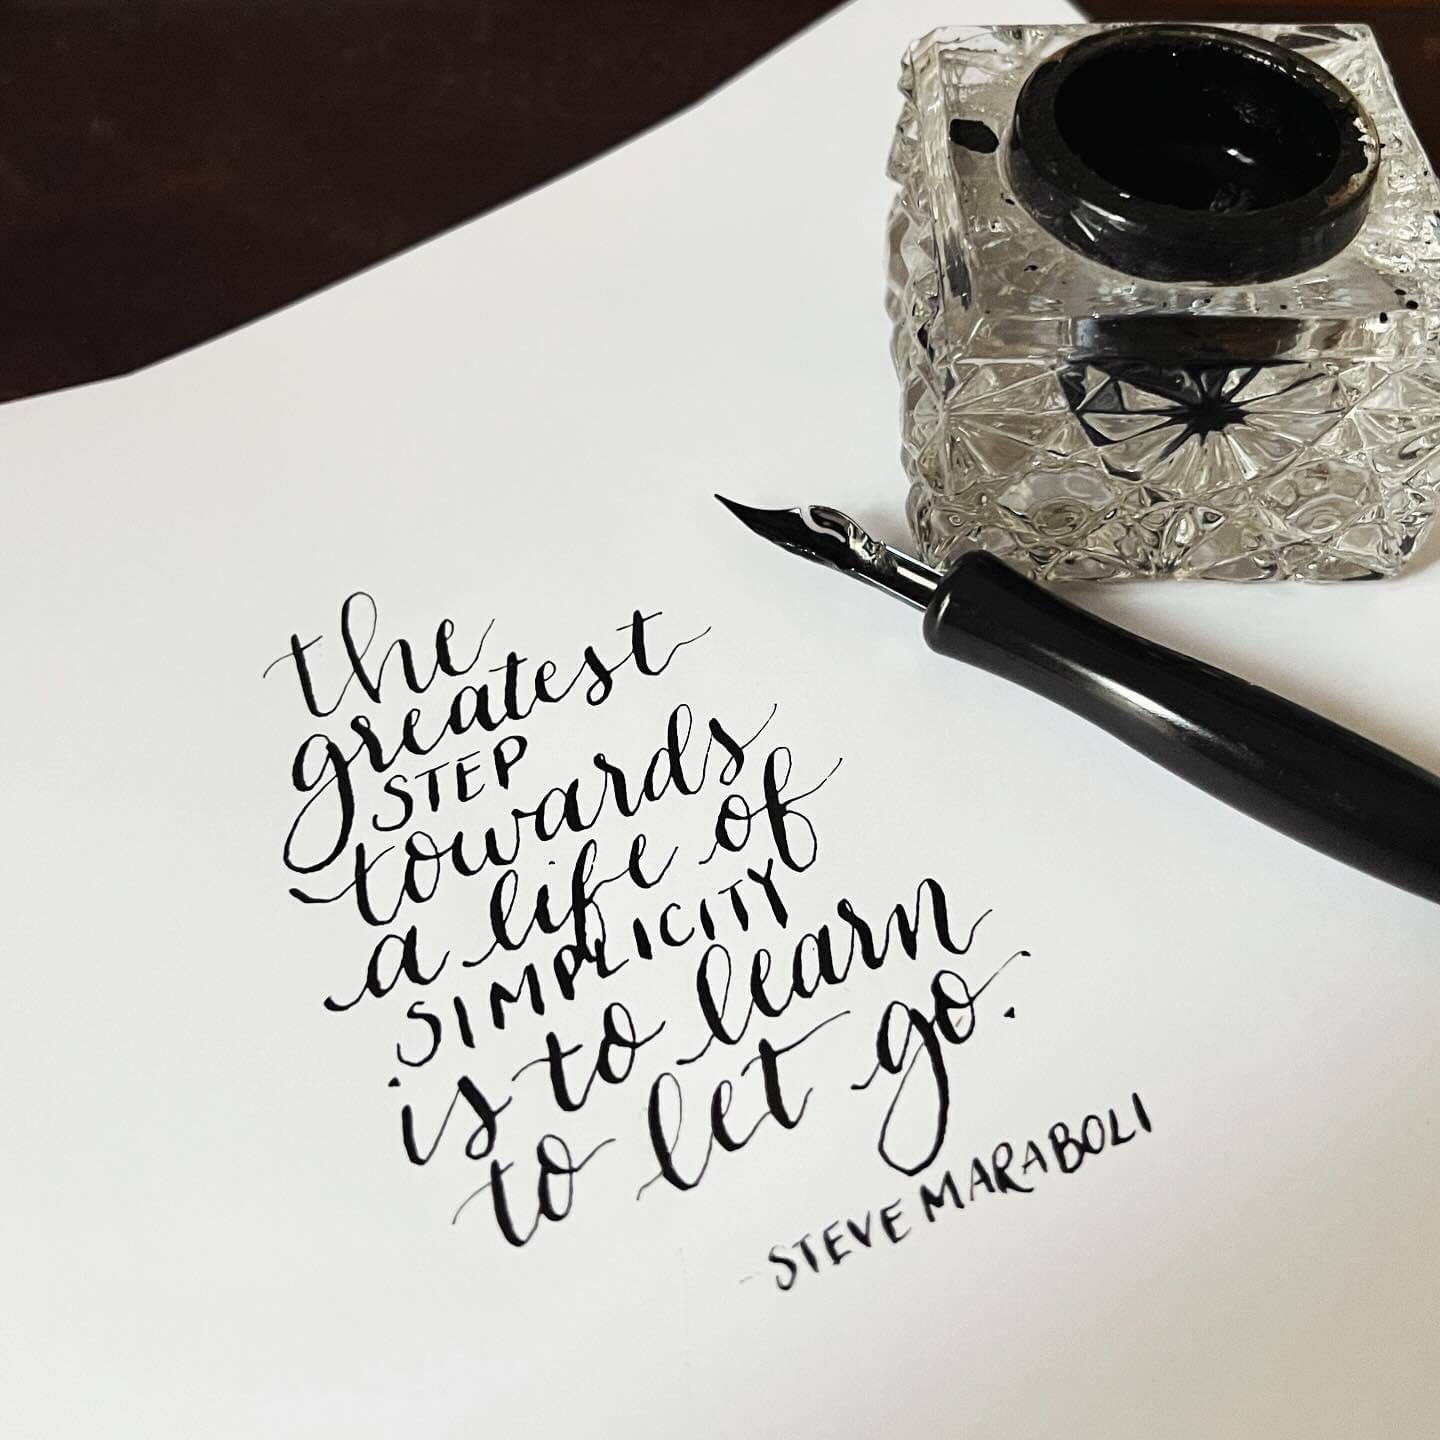 the
greatest
STEP
towards
a life of
SIMPLICITY
is to learn
to let go.
- STEVE MARABOLI